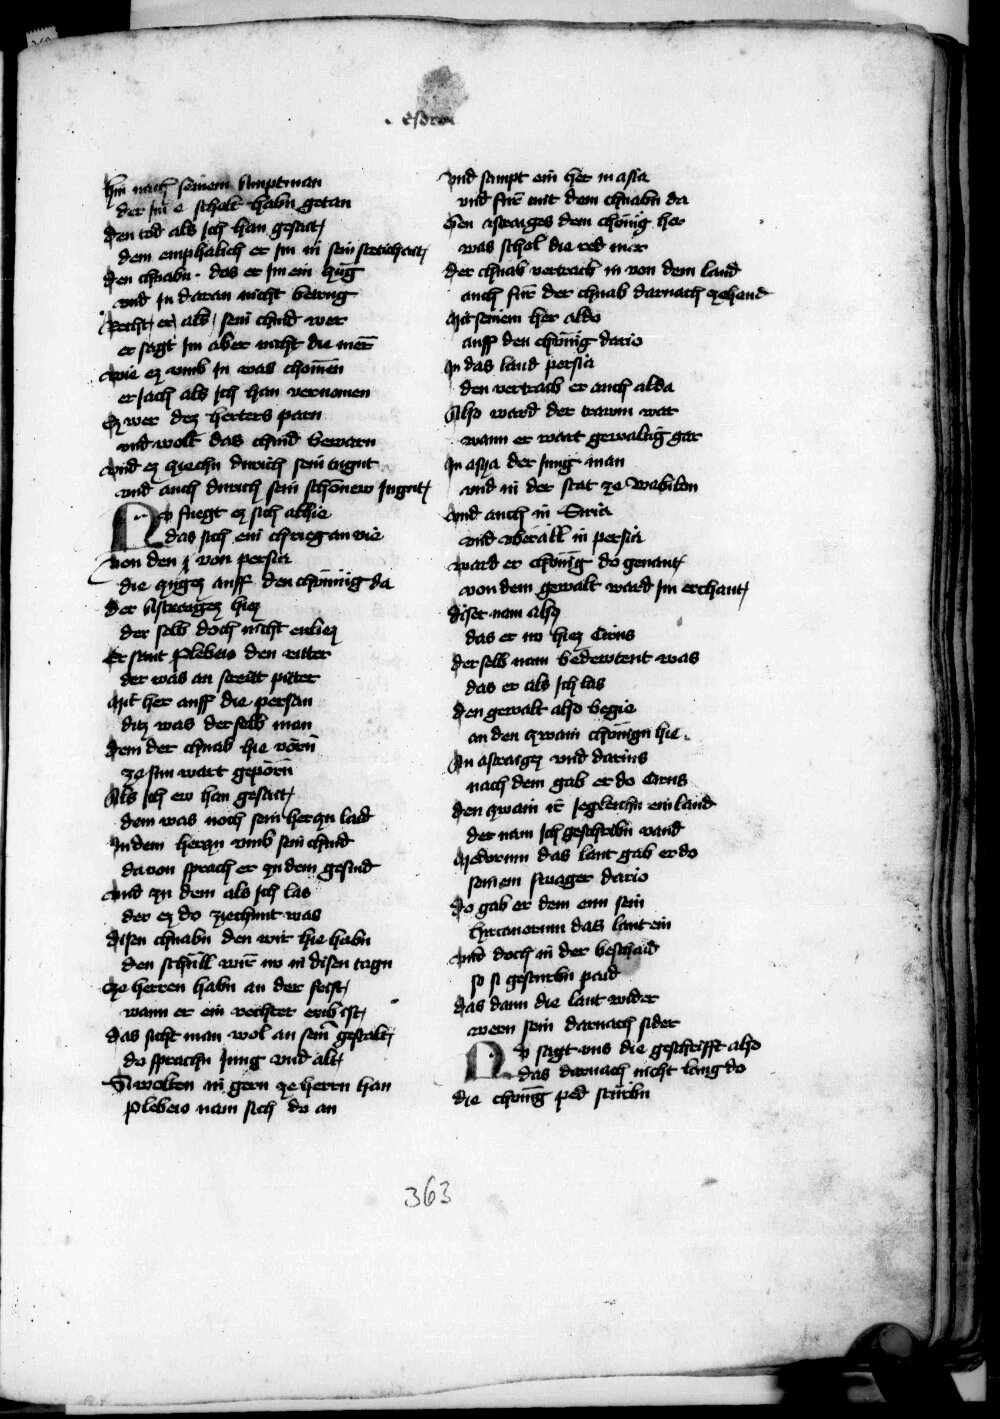 esdra
hin nach seinem Amptman
der im e scholt habn getan
den tod als ich han gesatt
dem emphalich er im in sein
den chnabn. das er im ein hug
vnd in daran nicht betrug
Recht er als sein chind wer
er sagt im aber nicht die mer
wie ez vmb in was chomen
er iach als ich han vernomen
Ez wer dez herters parn
vnd wolt das chind bewarn
vnd ez ziechn durich sein tugnt
vnd auch durich sein schonew iugnt
Nv fuegt ez sich alhie
das sich ein chrieg an vie
von den von persia
die zugez auff den chonnig da
der Astraigez hiez
der selb doch nicht enliez
Er sant plebeio den ritter
der was an streitt pitter
Mit her auff die persan
ditz was der selb man
dem der chnab hie vorn
ze sun wart geporn
Als ich ew han gesatt
dem was noch sein herczn laid
In dem herczn vmb sein chind
da von sprach er zu dem gesind
vnd zu dem als ich las
der ez do ziechunt was
disen chnabn den wir hie habn
den schull wir no in disen tagn
Ze herren habn an der frist
wann er ein rechter erib ist
das sicht man wol an sein gestalt
do sprachn iung vnd alt
Si wolten in gern ze herrn han
plebeio nam sich do an
vnd sampt ein her in asia
vnd fur mit dem chnabn da
Gen astraiges dem chonig her
was schol die red mer
der chnab vertraib in von dem land
auch fur der chnab darnach zehand
Mit seinem her aldo
auff den chonig dario
In das land persia
den vertraib er auch alda
Also ward der trawm war
wann er wart gewaltig gar
In asya der iung man
vnd in der stat ze Wabilon
vnd auch in Siria
vnd vberall in persia
ward er chonig do genant
von dem gewalt ward im erchant
diser nam also
das er no hiez Cirus
der selb nam bedewtent was
das er als ich las
den gewalt also begie
an den zwain chonign hie.
An astraigez vnd darius
nach dem gab er do Cirus
den zwain ir iegleichn ein land
der nam ich geschribn vand
Medorum das lant gab er do
seinem swager dario
do gab er dem enn sein
hyrcanorum das lant ein
vnd doch in der beschaid
so si gesturbn paid
das dann die lant wider
wern sein darnach sider
Nv sagt vns die geschrifft also
das darnach nicht lang do
die chonig ped sturbn
363